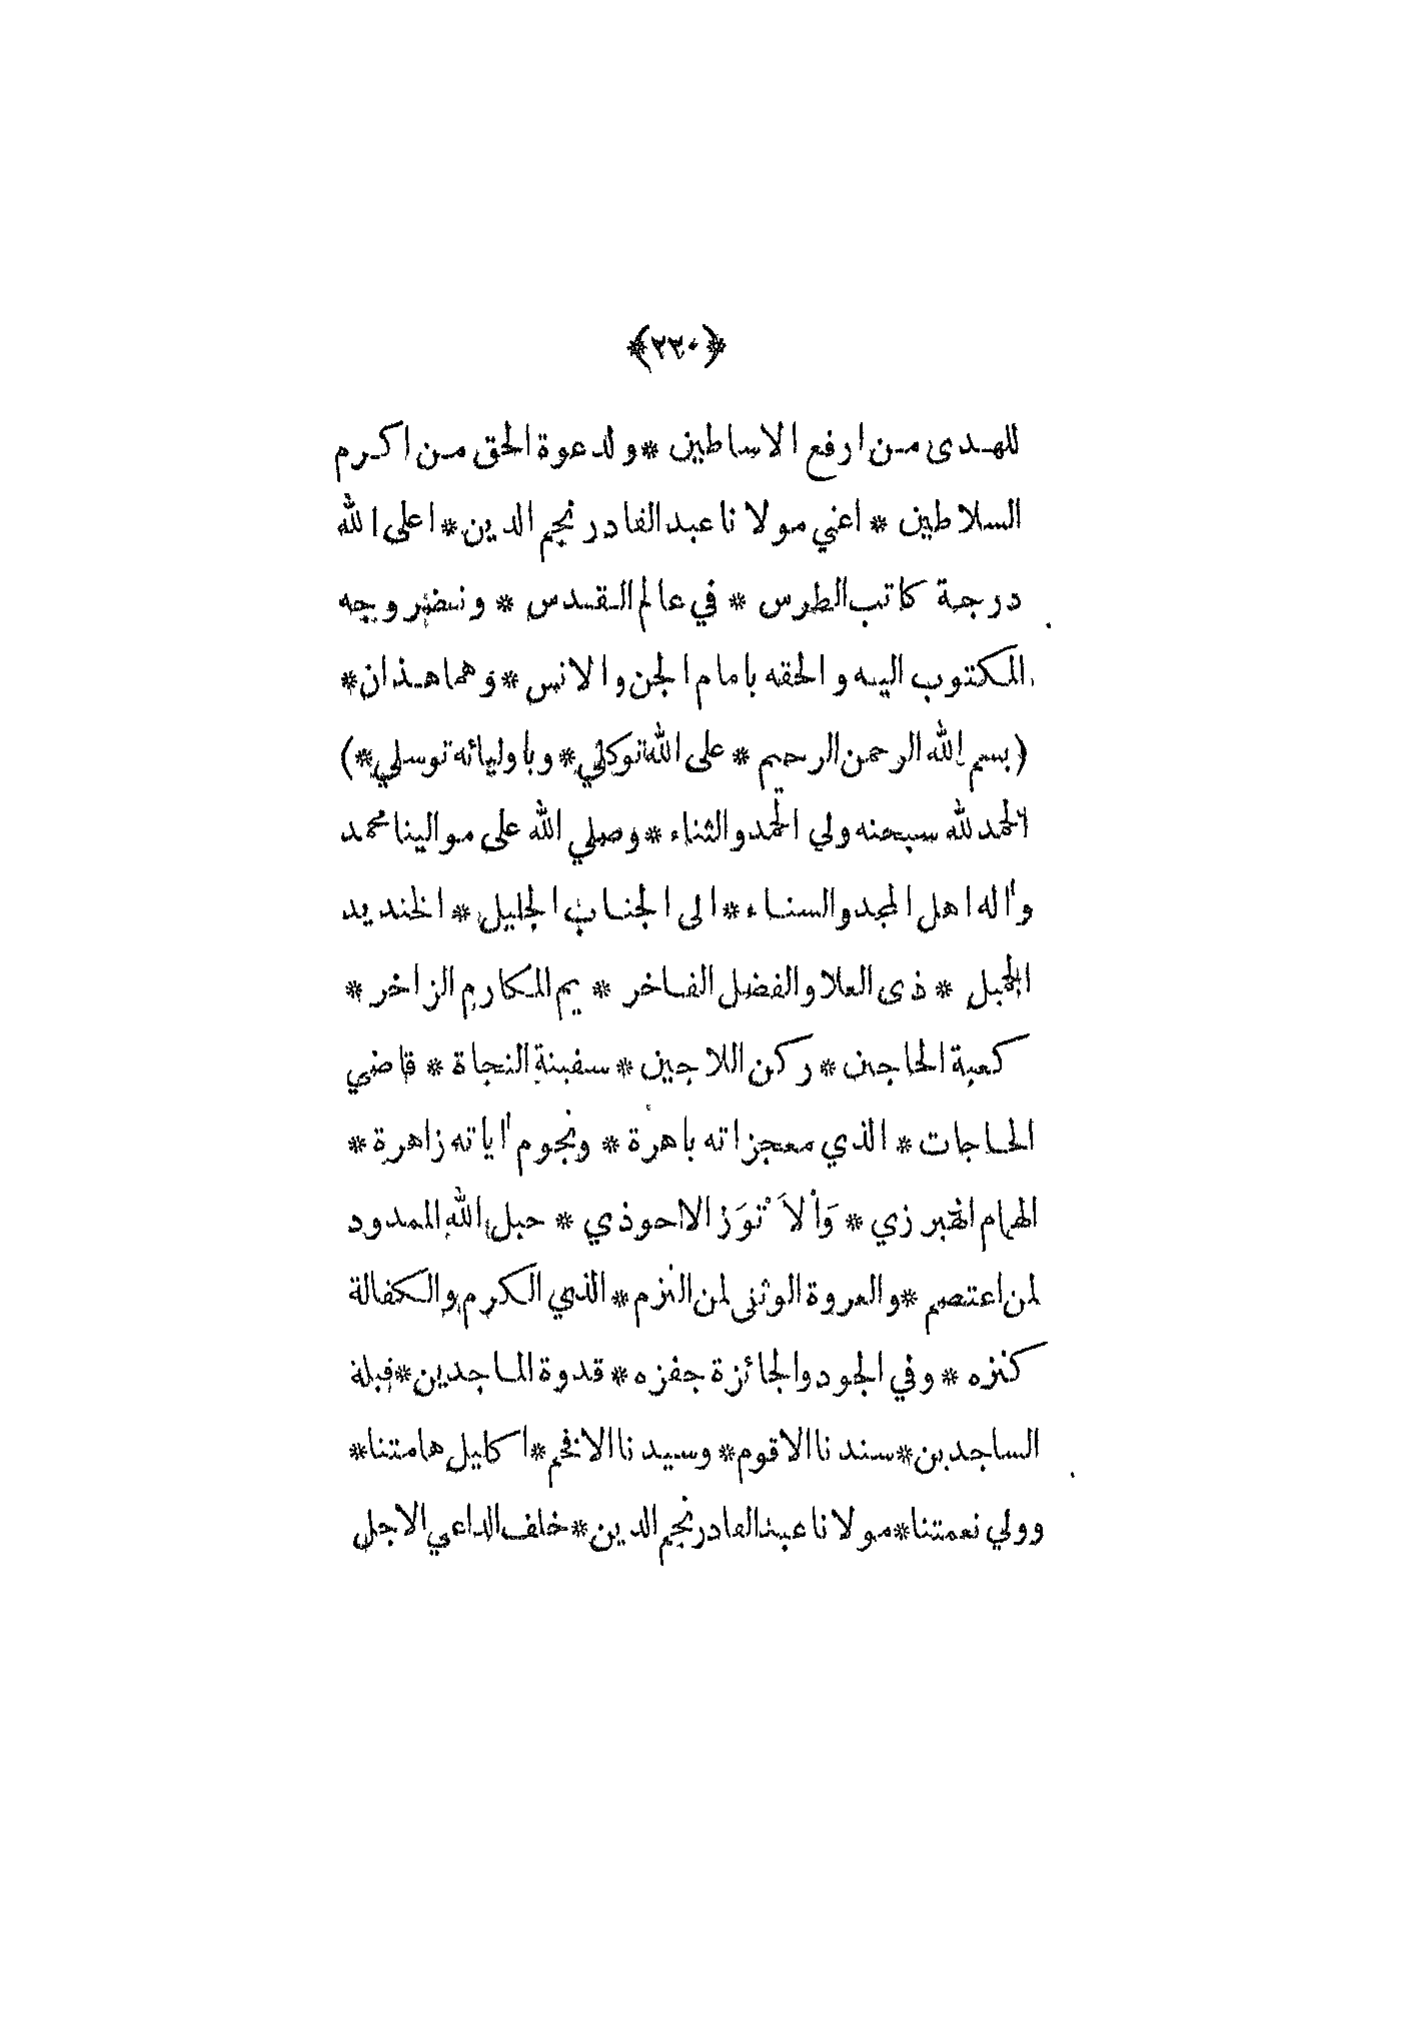 ﴿٢٣٠﴾
للهدى من ارفع الاساطين * ولدعوة الحق من اكرم
السلاطين * اعني مولانا عبد القادر نجم الدين * اعلى الله
درجة كاتب الطرس * في عالم القدس * ونضر وجه
المكتوب اليه والحقه بامام الجن والانس * وهما هذان *
(بسم الله الرحمن الرحيم * على الله توكلي * وباوليائه توسلي *)
الحمد لله سبحنه ولي الحمد والثناء * وصلي الله على موالينا محمد
وأله اهل المجد والسناء * الى الجناب الجليل * الخنديد
الجميل * ذى العلا والفضل الفاخر * يم المكارم الزاخر *
كعبة الحاجين * ركن اللاجين * سفينة النجاة * قاضي
الحاجات * الذي معجزاته باهرة * ونجوم أياته زاهرة *
الهمام الهبرزي * الاحوذي * حبل الله الممدود
لمن اعتصم * والعروة الوثقى لمن التزم * الذي الكرم والكفالة
كنزه * وفي الجود والجائزة جفزه * قدوة الماجدين * قبلة
الساجدين * سندنا الاقوم * وسيدنا الافخم * اكليل هامتنا *
وولي نعمتنا * مولانا عبد القادر نجم الدين * خلف الداعي الاجل